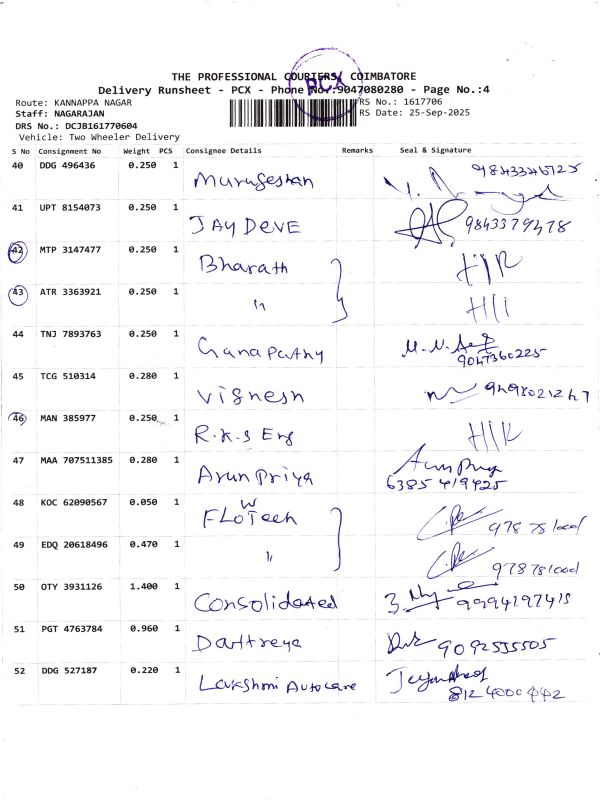 THE PROFESSIONAL COURIERS, COIMBATORE
PCX
Delivery Runsheet - PCX - Phone No.:9047080280 - Page No.:4
Route: KANNAPPA NAGAR RS No.: 1617706
Staff: NAGARAJAN RS Date: 25-Sep-2025
DRS No.: DCJB161770604
Vehicle: Two Wheeler Delivery
S No Consignment No Weight PCS Consignee Details Remarks Seal & Signature
40 DDG 496436 0.250 1 Murugeshan
41 UPT 8154073 0.250 1 JAY DEVE 9843379478
42 MTP 3147477 0.250 1 Bharath
43 ATR 3363921 0.250 1 〃
44 TNJ 7893763 0.250 1 Ganapathy 9047360225
45 TCG 510314 0.280 1 Vignesh
46 MAN 385977 0.250 1 R.K.S Eng
47 MAA 707511385 0.280 1 ArunPriya 6385419425
48 KOC 62090567 0.050 1 FLOWTech
49 EDQ 20618496 0.470 1 〃
50 OTY 3931126 1.400 1 Consolidated 9994197419
51 PGT 4763784 0.960 1 Dattreya 9092555505
52 DDG 527187 0.220 1 Lakshmi Autocare 8124000442